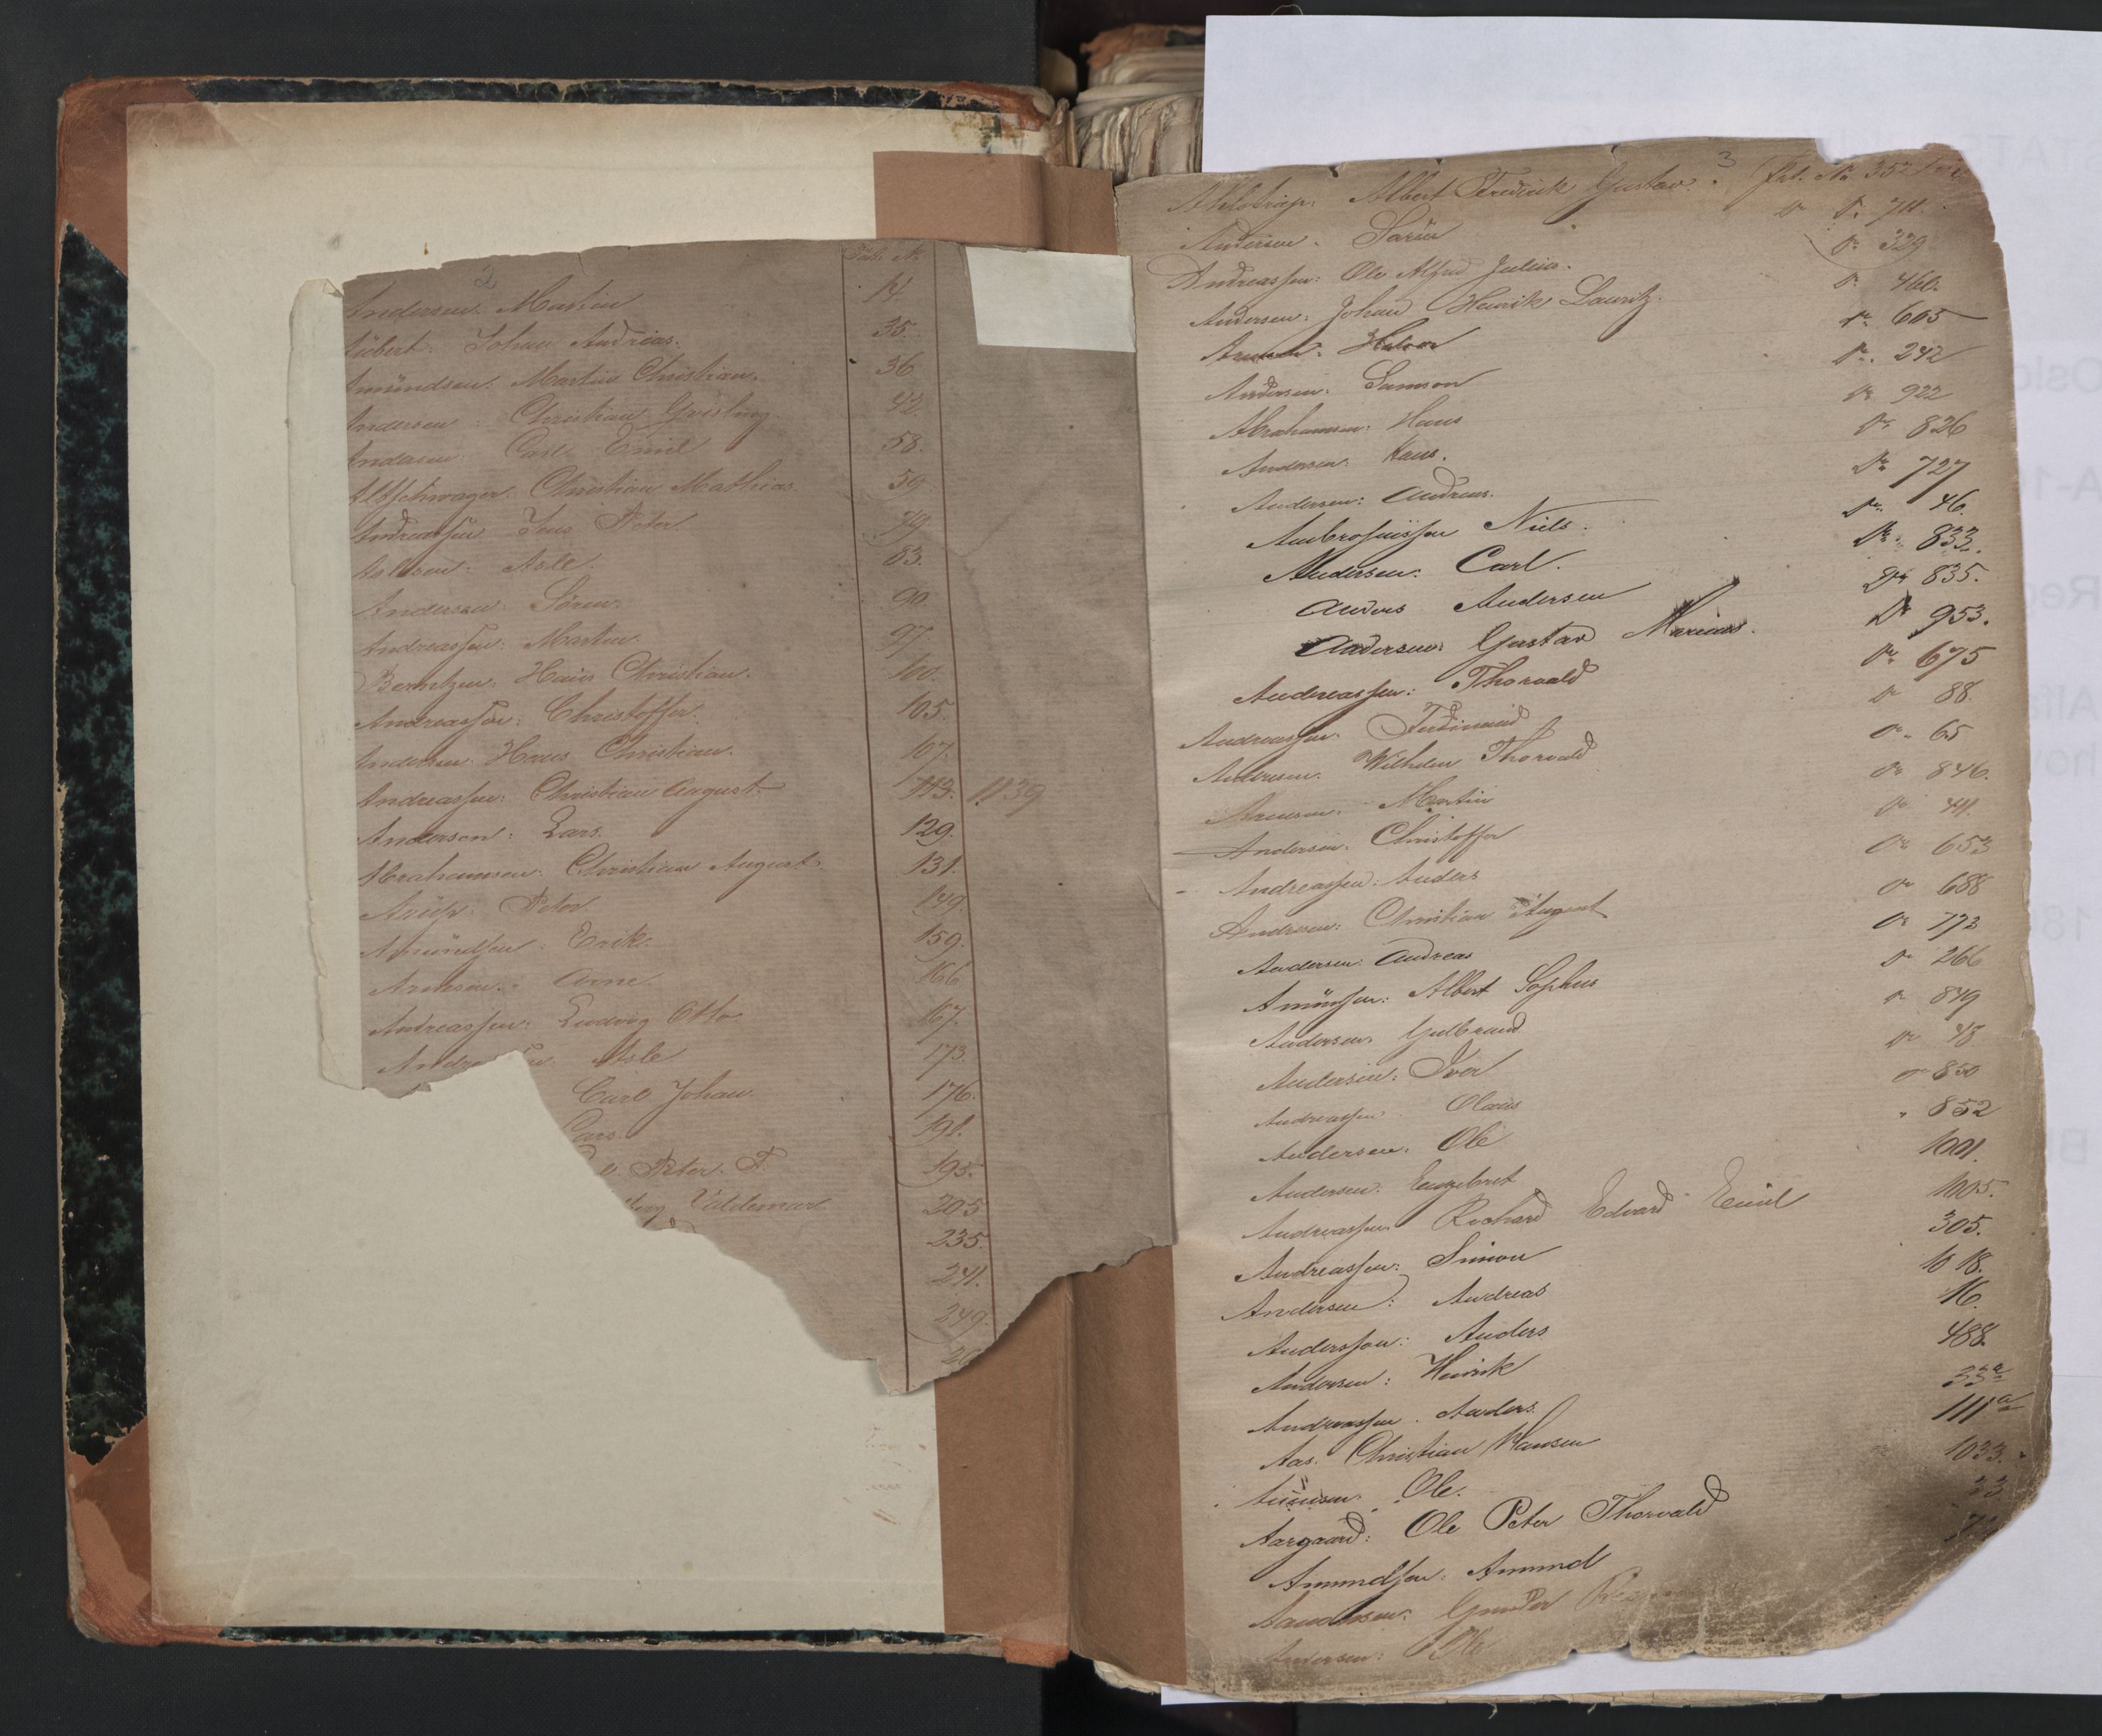 2
Pat. No.
Andersen: Martin 14.
Hübert: Johan Andreas. 35.
Amündsen: Martin Christian. 36
Andersen: Christian Qvisling 42.
Andersen: Carl Emil 58.
Altschwager: Christian Mathias. 59.
Andreassen Jens Peter 79.
Aslesen: Asle. 83.
Andersen: Sören. 90
Andreassen: Martin. 97.
Berntzen: Hans Christian. 100.
Andreassen: Christoffer. 105.
Andersen: Hans Christian. 107.
Andreassen: Christian August. 113. 1139
Anderson: Lars. 129.
Abrahamsen: Christian August. 131.
Aarup: Peter. 149.
Amündsen: Erik. 159.
Arnesen: Arne 166
Andreassen: Ludvig Otto 167.
Asle 173.
Carl Johan 176.
Lars. 191.
Peter. 195.
Valdemar 205
235.
241.
249.
3
Albert Fredrik Gustav. Pat. No 352
Andersen. Sörin 711.
Andreassen: Ole Alfred Julius. 329
Andersen: Johan Henrik Lauritz. 460.
Halvor 605
Andersen: Samson 242
Abrahamsen: Hans 922
Andersen: Hans. 826
Andersen: Andreas. 727
Ambrosiussen Niels. 46.
Andersen: Carl. 833.
Anders Andersen 835.
Andersen: Gustav Marius. 953.
Andreassen: Thorvald 675
Andreassen. Ferdinand 88.
Andresen. Wilhelm Thorvald 65
Martin 846.
Andersen: Christoffer 441.
Andreassen: Anders 653
Andresen: Christian August 688
Andersen: Andreas 773
Amünsen: Albert Sophus 266
Andersen. Gulbrand 849
Andersen: Iver 48
Andreassen Olaus 850
Andersen: Ole 852
Andersen. Engebret 1001.
Andreassen Richard Edvard Emil 1005.
Andreassen: Simon 305.
Andersen: Andreas 1018.
Anderssen: Anders 16.
Andersen: Henrik 488.
Andreassen. Anders. 33a
Aas. Christian Hansen 111a
Ole. 1033.
Aargaard: Ole Peter Thorvald 23
Amundsen: Amund
Gunder
Andersen: Ole